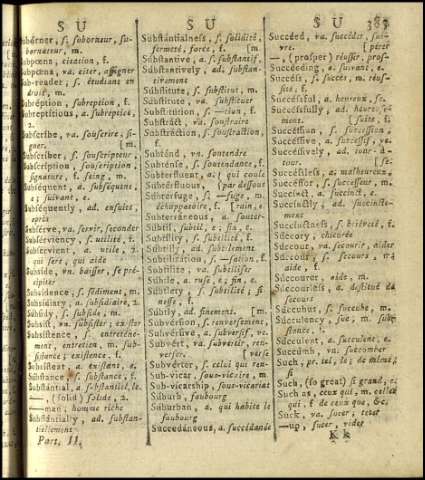 S U
S U
S U 383
Suborner, s. suborneur, su-
borneateur, m.
Subpœna, citation, f.
Subpœna, va. citer, assigner
Sub-reader, s. étudiant en
droit, m.
Subreption, subreption, f.
Subreptitious, a. subreptice,
2.
Subscribe, va. souscrire, si-
gner. [m.
Subscriber, s. souscripteur,
Subscription, souscription,
signature, f. seing, m.
Subsequent, a. subséquent,
2; suivant, e.
Subsequently, ad. ensuite
après
Subserve, va. servir, seconder
Subserviency, s. utilité, f.
Subservient, a. utile, 2.
qui sert, qui aide
Subside, vn. baisser, se pré-
cipiter
Subsidence, s. sédiment, m.
Subsidiary, a. subsidiaire, 2.
Subsidy, s. subside, m.
Subsist, va. subsister, exister
Subsistence, s. entretène-
ment, entretien, m. sub-
sistance; existence, f.
Subsistent, a. existant, e.
Substance, s. substance, f.
Substantial, a. substantiel, le.
—, (solid) solide, 2.
—man, homme riche
Substantially, ad. substan-
tiellement
Part. II.
Substantialness, s. solidité,
fermeté, force, f. [m.
Substantive, a. s. substantif,
Substantively, ad. substan-
tivement
Substitute, s. substitut, m.
Substitute, va. substituer
Substitution, s. —tion, f.
Substract, va. soustraire
Substraction, s. soustraction,
f.
Subtend, va. soutendre
Subtense, s. soutendante, f.
Subterfluent, a. { qui coule
Subterfluous, { par dessous
Subterfuge, s. —fuge, m.
échappatoire, f. [rain, e.
Subterraneous, a. souter-
Subtil, subtil, e; fin, e.
Subtility, s. subtilité, f.
Subtilly, ad. subtilement
Subtilization, s. —sation, f.
Subtilize, va. subtiliser
Subtile, a. rusé, e; fin, e.
Subtlety, s. subtilité; fi
nesse, f.
Subtly, ad. finement. [m.
Subversion, s. renversement,
Subversive, a. subversif, ve.
Subvert, va. subvertir, ren-
verser. [verse
Subverter, s. celui qui ren-
Sub-vicar, sous-vicaire, m.
Sub-vicarship, sous-vicariat
Suburb, faubourg
Suburban, a. qui habite le
faubourg
Succedaneous, a. succédanée
Succeed, va. succéder, sui-
vre. [pérer
—, (prosper) réussir, pros-
Succeeding, a. suivant, e.
Success, s. succès, m. réus-
site, f.
Successful, a. heureux, se.
Successfully, ad. heureuse-
ment. [suite, f.
Succession, s. succession,
Successive, a. successif, ve.
Successively, ad. tour à-
tour. [se.
Successless, a. malheureux,
Successor, s. successeur, m.
Succinct, a. succinct, e.
Succinctly, ad. succincte-
ment
Succinctness, s. brièveté, f.
Succory, chicorée
Succour, va. secourir, aider
Succour, s. secours, m.
aide, f.
Succourer, aide, m.
Succourless, a. destitué de
secours
Succubus, s. succube, m.
Succulency, suc, m. sub-
stance, f.
Succulent, a. succulent, e.
Succumb, va. succomber
Such, pr. tel, le; de même,
si
Such, (so great) si grand, e;
Such as, ceux qui, m. celles
qui, f. de ceux que, &c.
Suck, va. sucer, téter
—up, sucer, vider
K k